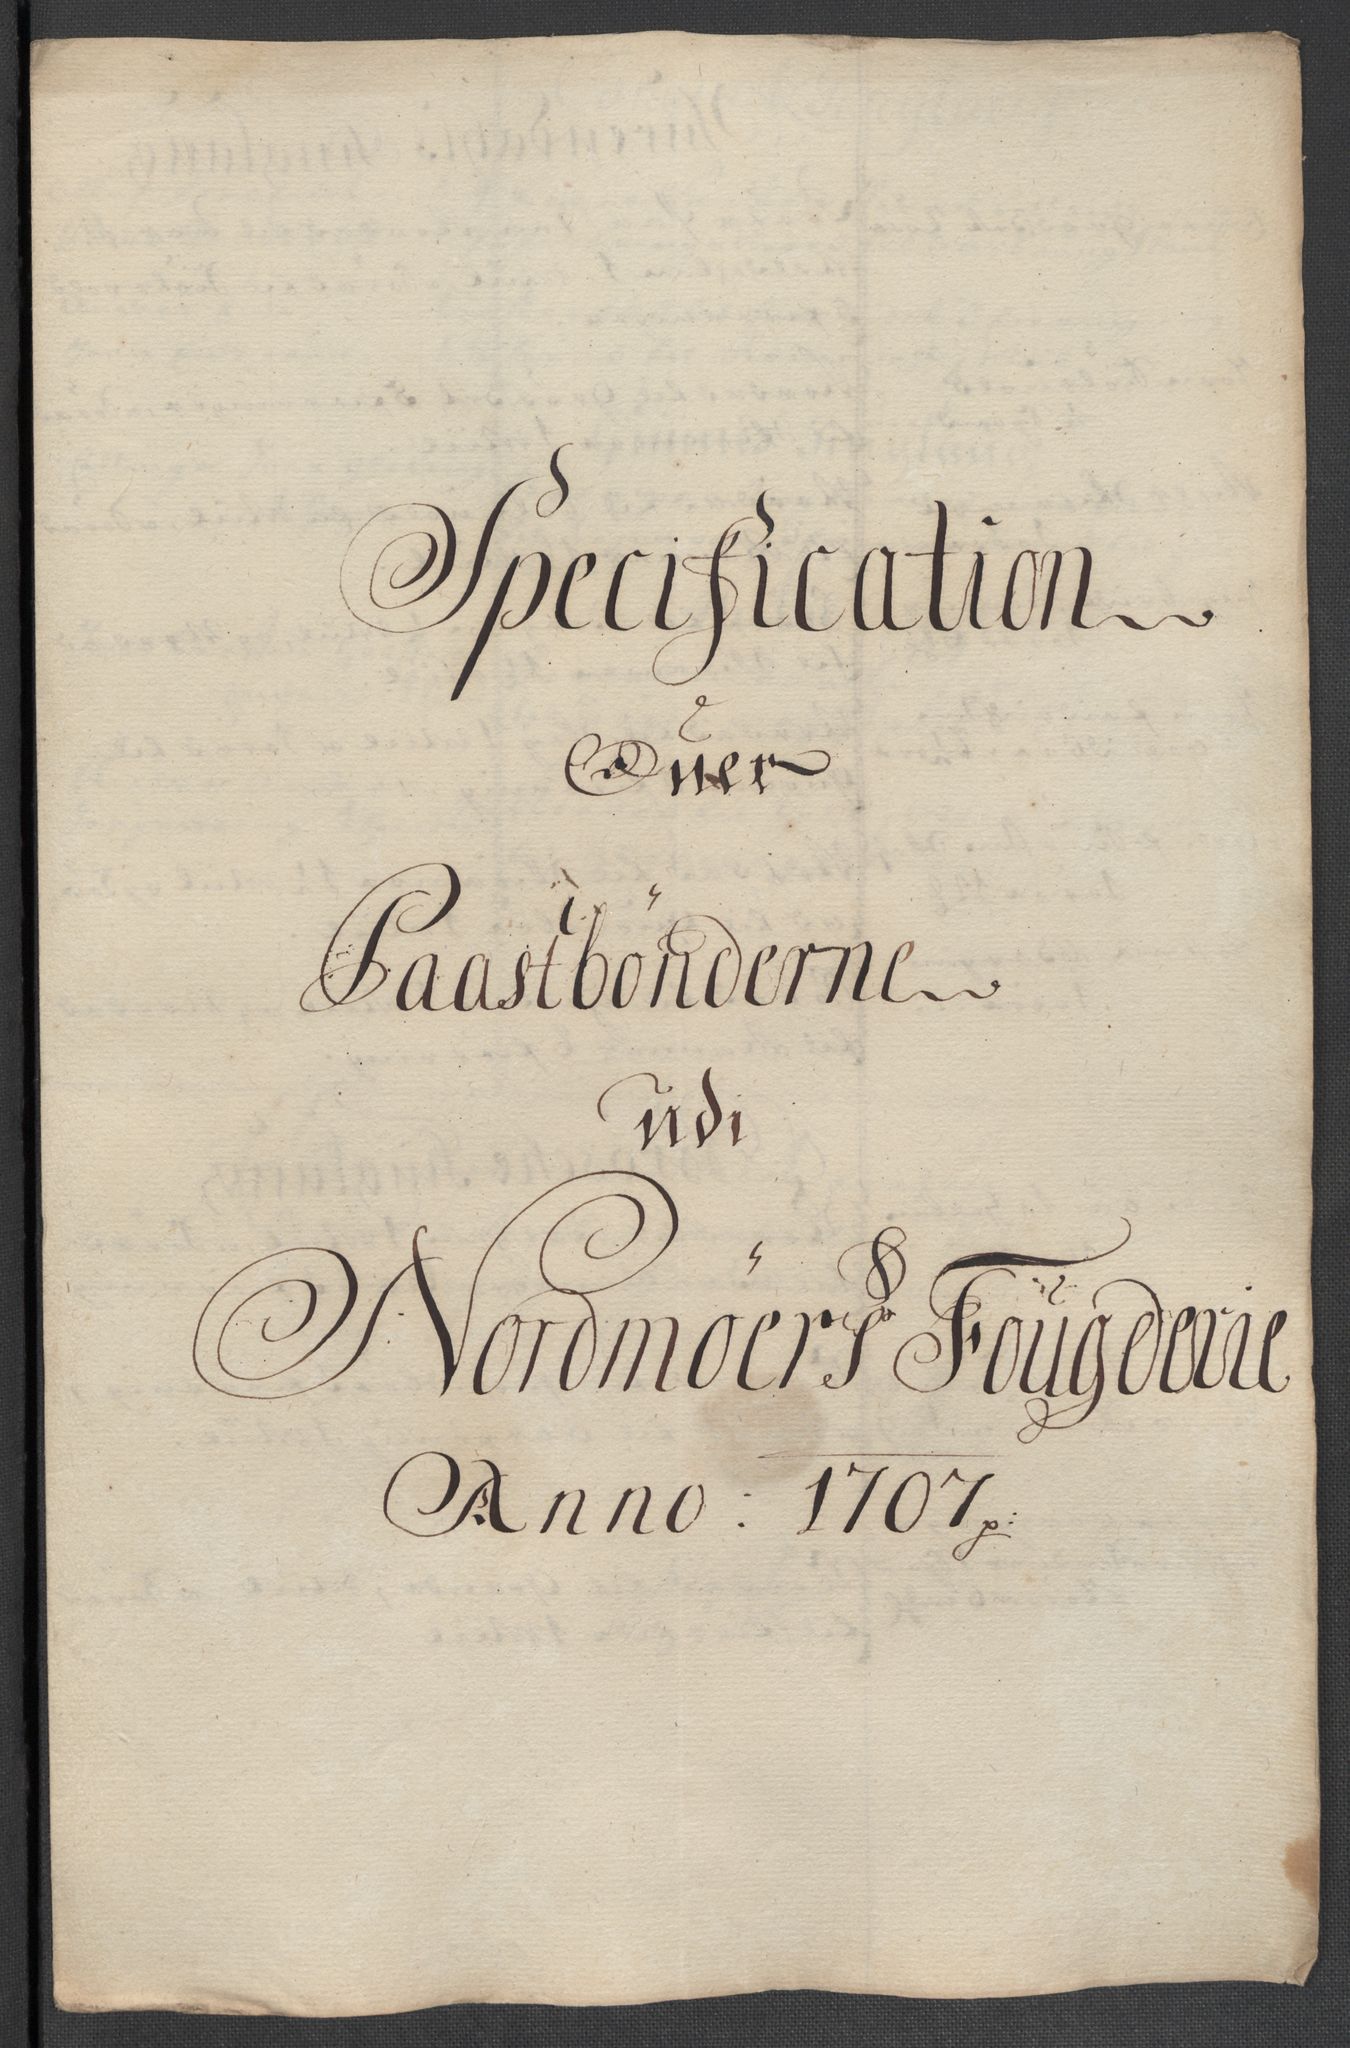 Specification
Ouer
Paastbönderne
udi
Nordmöers Fougderie
Anno: 1707 p: